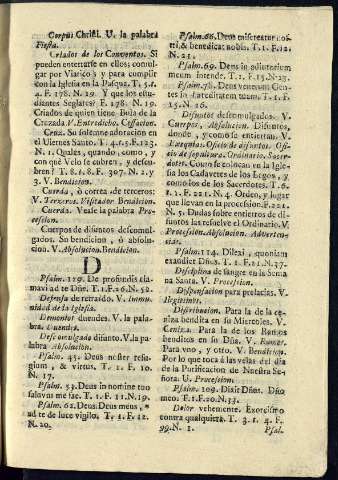 Corpus Christi. V. la palabra
Fiesta.
Criados de los Conventos. Si
pueden enterrarse en ellos; comulgar
por Viatico; y para cumplir
con la Iglesia en la Pasqua. T. 5. f.
F. 178. N. 29. Y que los estudiantes
Seglares? F. 178. N. 19.
Criados de quien tiene Bula de la
Cruzada V. Entredicho. Cessacion.
Cruz. Su solemne adoracion en
el Viernes Santo. T. 4. 1. 5. F. 123.
N. 1. Quales, quando, como, y
con què Velo se cubren, y descubren?
T. 8. 1. 8. F. 307. N. 2. y
3. V. Bendicion.
Cuerda, ò correa de terceros:
V. Terceros. Visitador. Bendicion.
Cuerda. Vease la palabra Procession.
Cuerpos de difuntos descomulgados.
Su bendicion, ò absolucion.
V. Absolucion. Bendicion.
D
Psalm. 129. De profundis clamavi
ad te Dñe. T. 1. F. 26. N. 52.
Defensa de retraìdo. V. Immunidad
de la Iglesia.
Demonios duendes. V. la palabra.
Duendes.
Descomulgado difunto. V. la palabra
Absolucion.
Psalm. 45. Deus noster refugium,
& virtus. T. 1. F. 10.
N. 17.
Psalm. 53. Deus in nomine tuo
salvum me fac. T. 1. F. 11. N. 19.
Psalm. 62. Deus, Deus meus,
ad te de luce vigilo. T. 1. F. 12.
N. 20.
Psalm. 66. Deus misereatur nostri,
& benedicat nobis. T. 1. F. 12.
N. 21.
Psalm. 69. Deus in adiutorium
meum intende. T. 1. F. 15. N. 23.
Psalm. 78. Deus venerunt Gentes
in hæreditatem tuam. T. 1. F.
15. N. 26.
Difuntos descomulgados. V.
Cuerpos, Absolucion. Difuntos
donde, y como se entierran. V.
Exequias. Oficio de difuntos. Oficio
de sepultura. Ordinario. Sacerdotes.
Como se colocan en la Iglesia
los Cadaveres de los Legos, y
como los de los Sacerdotes. T. 6.
F. 1. F. 221. N. 4. Orden, y lugar
que llevan en la procession. F. 221.
N. 5. Dudas sobre entierros de difuntos
las resuelve el Ordinario. V.
Procession. Absolucion. Advertencias.
Psalm. 114. Dilexi, quoniam
exaudiet Dñus. T. 1. F. 21. N. 37.
Disciplina de sangre en la Semana
Santa. V. Procession.
Dispensacion para prelacias. V.
Ilegitimos.
Distribucion. Para la de la ceniza
bendita en su Miercoles. V.
Ceniza. Para la de los Ramos
benditos en su Dña. V. Ramos.
Para uno, y otro. V. Bendicion.
Por lo que toca à las velas del dia
de la Purificacion de Nuestra Señora.
V. Procession.
Psalm. 109. Dixit Dñus. Dño
meo. T. 1. F. 20. N. 33.
Dolor vehemente. Exorcismo
contra qualquiera. T. 3. 1. 4. F.
99. N. 1.
Psal.